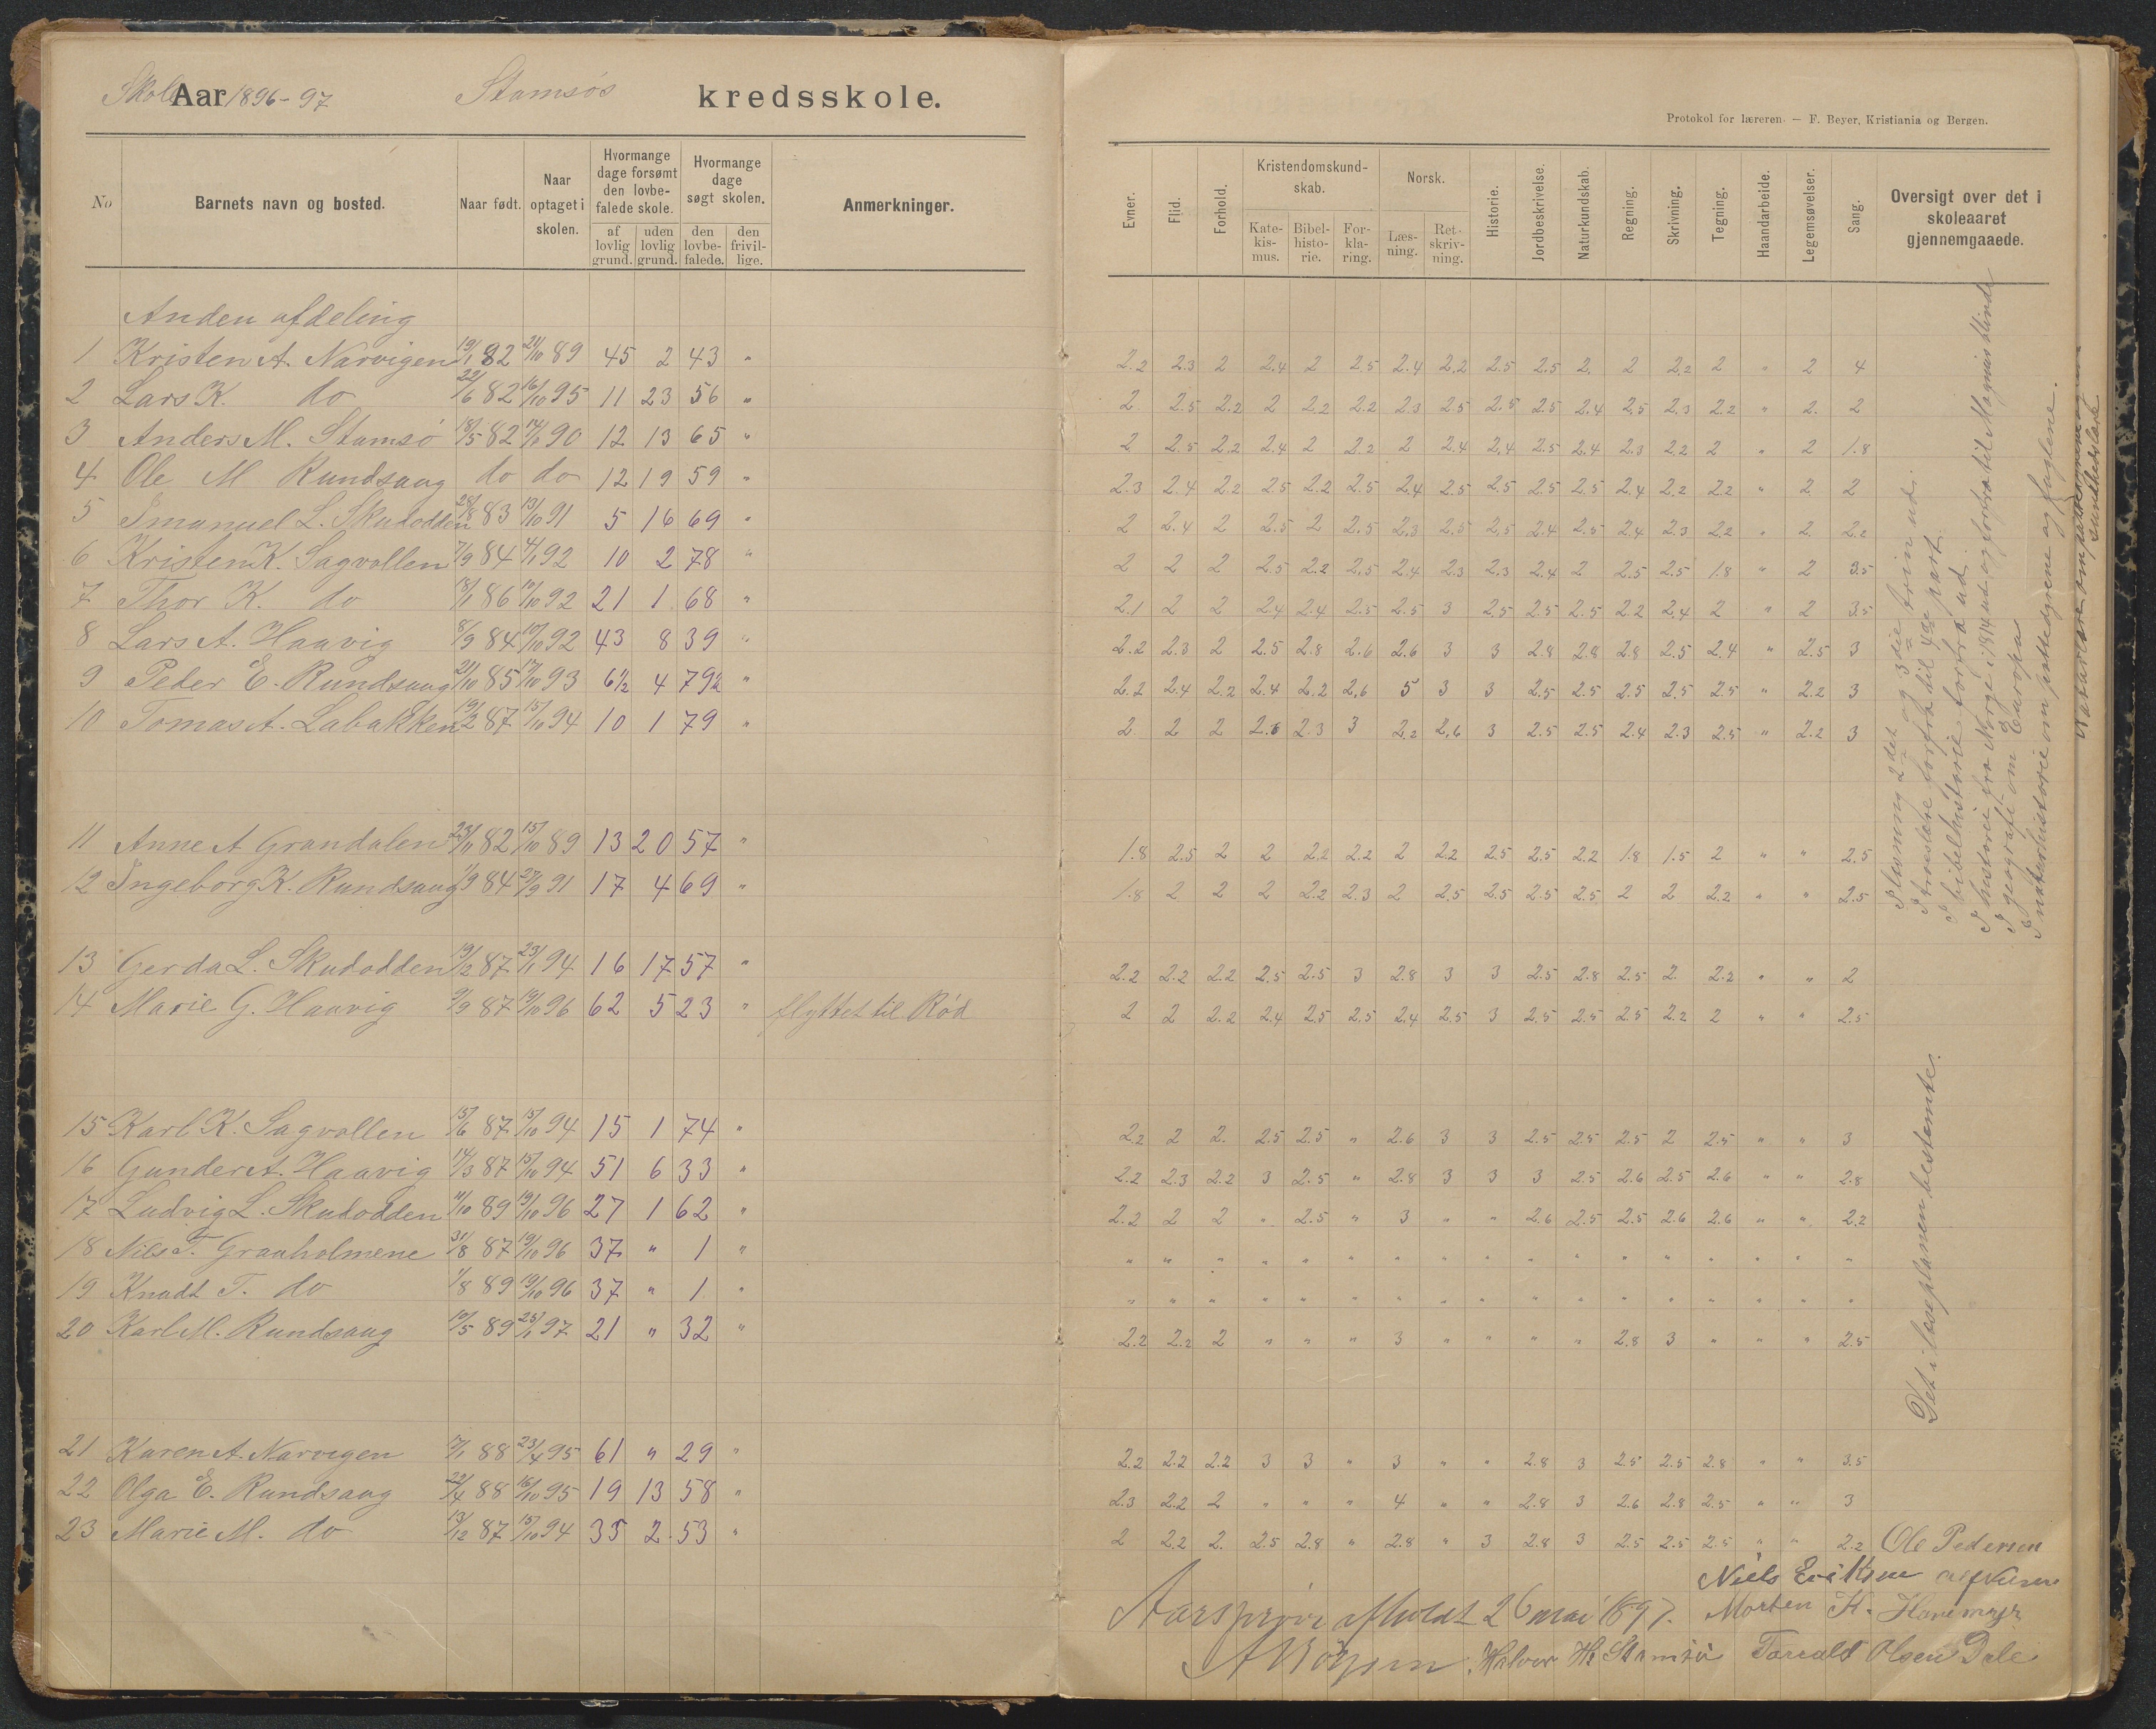 Skole Aar 1896-97 Stamsøs kredsskole.
No Barnets navn og bosted. Naar født. Naar optaget i skolen. Hvormange dage forsømt den lovbefalede skole. af lovlig grund. uden lovlig grund. Hvormange dage søgt skolen. den lovbefalede. den frivillige. Anmerkninger.
Anden afdeling
1 Kristen A. Narvigen 19/1 82 21/10 89 45 2 43 "
2 Lars K. do 22/6 82 16/10 95 11 23 56 "
3 Anders M. Stamsø 18/5 82 14/1 90 12 13 65 "
4 Ole M Rundsaug do do 12 19 59 "
5 Emanuel L. Skutodden 28/8 83 13/10 91 5 16 69 "
6 Kristen K. Sagvollen 7/9 84 4/1 92 10 2 78 "
7 Thor K. do 18/1 86 10/10 92 21 1 68 "
8 Lars A. Haavig 8/9 84 10/10 92 43 8 39 "
9 Peder E. Rundsaug 21/10 85 17/10 93 6½ 4 79½ "
10 Tomas A. Labakken 19/2 87 15/10 94 10 1 79 "
11 Anne A Grandalen 23/11 82 15/10 89 13 20 57 "
12 Ingeborg K. Rundsaug 1/9 84 27/9 91 17 4 69 "
13 Gerda L. Skutodden 19/2 87 23/1 94 16 17 57 "
14 Marie G. Haavig 9/9 87 19/10 96 62 5 23 " flyttet til Rød
15 Karl K. Sagvollen 15/6 87 15/10 94 15 1 74 "
16 Gunder A. Haavig 14/3 87 15/10 94 51 6 33 "
17 Ludvig L. Skutodden 11/10 89 19/10 96 27 1 62 "
18 Nils T. Granholmene 31/8 87 19/10 96 37 " 1 "
19 Knudt T. do 1/8 89 19/10 96 37 " 1 "
20 Karl M. Rundsaug 10/5 89 25/1 97 21 " 32 "
21 Karen A. Narvigen 17/1 88 23/4 95 61 " 29 "
22 Olga E. Rundsaug 22/4 88 16/10 95 19 13 58 "
23 Marie M. do 13/12 87 15/10 94 35 2 53 "
Protokol for læreren. — F. Beyer, Kristiania og Bergen.
Evner. Flid. Forhold. Kristendomskundskab. Katekismus. Bibelhistorie. Forklaring. Norsk. Læsning. Retskrivning. Historie. Jordbeskrivelse. Naturkundskab. Regning. Skrivning. Tegning. Haandarbeide. Legemsøvelser. Sang. Oversigt over det i skoleaaret gjennemgaaede.
2.2 2.3 2 2.4 2 2.5 2.4 2.2 2.5 2.5 2. 2 2.2 2 " 2 4
2 2.5 2.2 2 2.2 2.2 2.3 2.5 2.5 2.5 2.4 2.5 2.3 2.2 " 2. 2
2 2.5 2.2 2.4 2 2.2 2 2.4 2.4 2.5 2.4 2.3 2.2 2 " 2 1.8
2.3 2.4 2.2 2.5 2.2 2.5 2.4 2.5 2.5 2.5 2.5 2.4 2.2 2.2 " 2 2
2 2.4 2 2.5 2 2.5 2.3 2.5 2.5 2.4 2.5 2.4 2.3 2.2 " 2 2.2
2 2 2 2.5 2.2 2.5 2.4 2.3 2.3 2.4 2 2.5 2.5 1.8 " 2 3.5
2.1 2 2 2.4 2.4 2.5 2.5 3 2.5 2.5 2.5 2.2 2.4 2 " 2 3.5
2.2 2.3 2 2.5 2.8 2.6 2.6 3 3 2.8 2.8 2.8 2.5 2.4 " 2.5 3
2.2 2.4 2.2 2.4 2.2 2.6 5 3 3 2.5 2.5 2.5 2.5 2.5 " 2.2 3
2 2 2 2.5 2.3 3 2.2 2.6 3 2.5 2.5 2.4 2.3 2.5 " 2.2 3
1.8 2.5 2 2 2.2 2.2 2 2.2 2.5 2.5 2.2 1.8 1.5 2 " " 2.5
1.8 2 2 2 2.2 2.3 2 2.5 2.5 2.5 2.5 2 2 2.2 " " 2.5
2.2 2.2 2.2 2.5 2.5 3 2.8 3 3 2.5 2.8 2.5 2. 2.2 " " 2
2 2 2.2 2.4 2.5 2.5 2.4 2.5 3 2.5 2.5 2.5 2.2 2 " " 2.5
2.2 2 2. 2.5 2.5 " 2.6 3 3 2.5 2.5 2.5 2 2.5 " " 3
2.2 2.3 2.2 3 2.5 " 2.8 3 3 3 2.5 2.6 2.5 2.6 " " 2.8
2.2 2 2 " 2.5 " 3 " " 2.6 2.5 2.5 2.6 2.6 " " 2.2
" " " " " " " " " " " " " " " " "
" " " " " " " " " " " " " " " " "
2.2 2.2 2 " " " 3 " " " " 2.8 3 " " " 2.5
2.2 2.2 2.2 3 3 " 3 " " 2.8 3 2.5 2.5 2.8 " " 3.5
2.3 2.2 2 " " " 4 " " 2.8 3 2.6 2.8 2.5 " " 3
2 2.2 2. 2.5 2.8 " 2.8 " 3 2.8 3 2.5 2.5 2.5 " " 2.2
I læsning 2det og 3die trin ud.
I troeslære forfra til 4de part.
I bibelhistorie forfra ud.
I historie fra Norge i 1814 ud og forfra til Magnus blinde
I geografi om Europa
I naturhistorie om pattedyrene og fuglene.
Naturlære om
sundhedslære
Det i læseplanen bestemte.
Ole Pedersen
Niels Eriksen
Aarsprøve afholdt 26 mai 1897. Morten K. Hanemyr
Halvor Hs Stamsø Tarald Olsen Dale